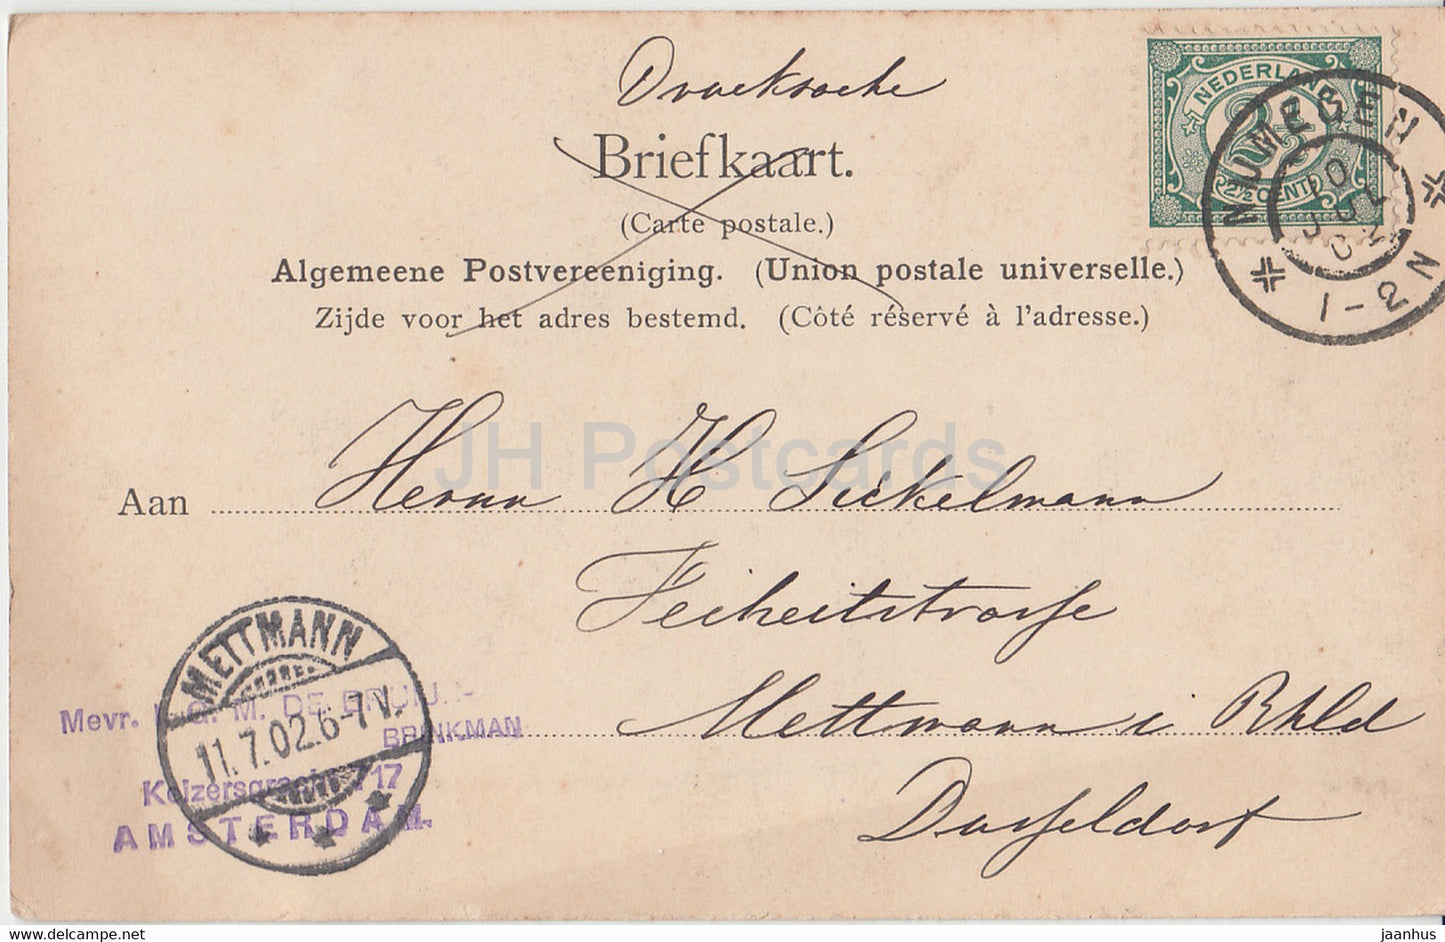 Drucksache
NEDERLAND
2½
2½ CENT
NIJMEGEN
10 JUL 02
1-2 N
Briefkaart.
(Carte postale.)
Algemeene Postvereeniging. (Union postale universelle.)
Zijde voor het adres bestemd. (Côté réservé à l'adresse.)
JH Postcards
Aan Herrn H Sickelmann
Feiheitstrasse
Mettmann i Rhld
Dusseldorf
METTMANN
11.7.02.6-7V.
Mevr. G. M. DE BRUIJN
BRINKMAN
Keizersgracht 717
AMSTERDAM.
www.delcampe.net
jaanhus